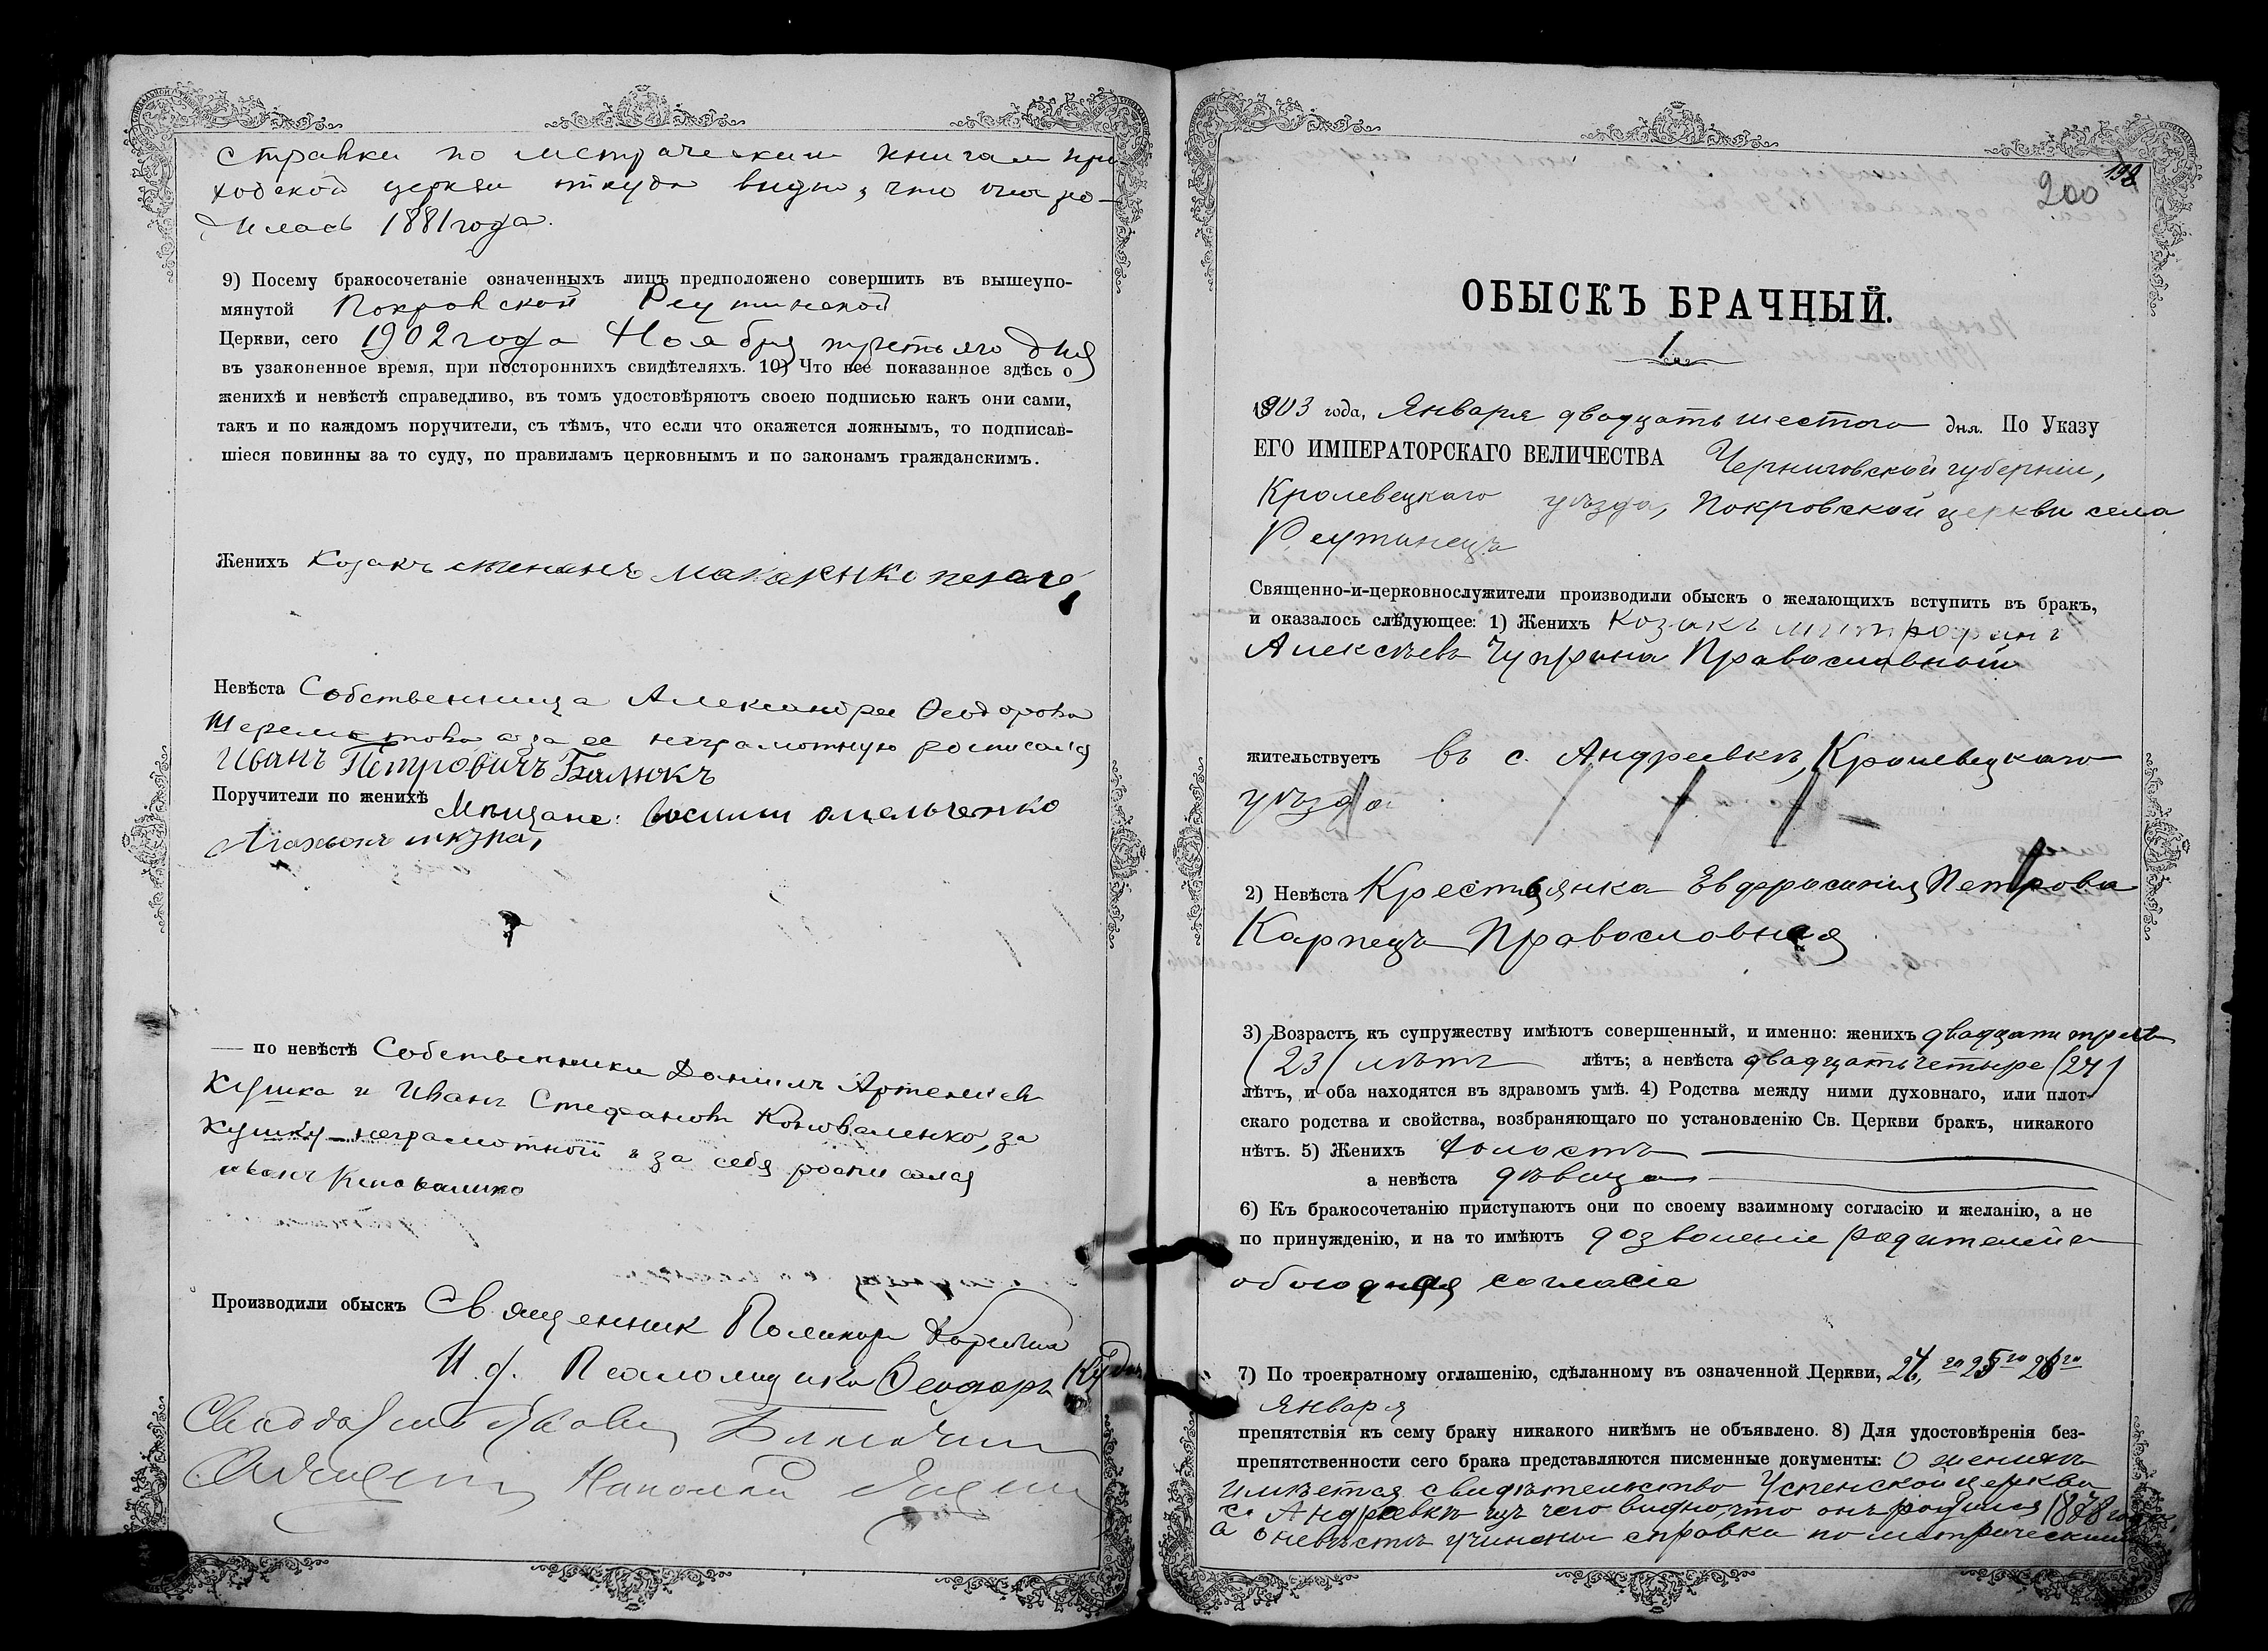 справки по метрическим книгам при-
ходской церкви откуда видно, что она ро-
дилась 1881 года.
9) Посему бракосочетаніе означенныхъ лицъ предположено совершить въ вышеупо-
мянутой Покровской Реутинской
Церкви, сего 1902 года Ноября третьяго дня
въ узаконенное время, при постороннихъ свидѣтеляхъ. 10) Что все показанное здѣсь о
женихѣ и невѣстѣ справедливо, въ томъ удостовѣряютъ своею подписью какъ они сами,
такъ и по каждомъ поручители, съ тѣмъ, что если что окажется ложнымъ, то подписав-
шіеся повинны за то суду, по правиламъ церковнымъ и по законамъ гражданскимъ.
Женихъ Козакъ
Невѣста Собственница Александра Ѳеодорова
Шереметова а за ее неграмотную росписался
Иванъ Петровичъ Балюкъ
Поручители по женихѣ Мѣщане: Омельченко
шкура,
— по невѣстѣ Собственники Даніилъ Артеміев
Кушка и Иванъ Стефановъ Коноваленко, за
Кушку неграмотной и за себя росписался
иванъ Коноваленко
Производили обыскъ Священник
И. д. Псаломщика Ѳеодоръ
200
198
ОБЫСКЪ БРАЧНЫЙ.
1
1903 года, Января двадцать шестого дня. По Указу
ЕГО ИМПЕРАТОРСКАГО ВЕЛИЧЕСТВА Черниговской губерніи,
Кролевецкаго уѣзда, Покровской церкви села
Реутинецъ
Священно-и-церковнослужители производили обыскъ о желающихъ вступить въ бракъ,
и оказалось слѣдующее: 1) Женихъ Козакъ Митрофанъ
Алексѣевъ Чупрына Православный
жительствуетъ въ с. Андреевкѣ, Кролевецкаго
уѣзда
2) Невѣста Крестьянка Евфросинія Петрова
Карпецъ Православная
3) Возрастъ къ супружеству имѣютъ совершенный, и именно: женихъ двадцати трехъ
(23) лѣтъ лѣтъ; а невѣста двадцать четыре (24)
лѣтъ, и оба находятся въ здравомъ умѣ. 4) Родства между ними духовнаго, или плот-
скаго родства и свойства, возбраняющаго по установленію Св. Церкви бракъ, никакого
нѣтъ. 5) Женихъ холостъ
а невѣста дѣвица
6) Къ бракосочетанію приступаютъ они по своему взаимному согласію и желанію, а не
по принужденію, и на то имѣютъ дозволеніе родителей и
обоюдная согласіе
7) По троекратному оглашенію, сдѣланному въ означенной Церкви,
Января
препятствія къ сему браку никакого никѣмъ не объявлено. 8) Для удостовѣренія без-
препятственности сего брака представляются писменные документы: О женихѣ
имѣется свидѣтельство Успенской церкви
с. Андреевкѣ изъ чего видно, что онъ родился
а о невѣстѣ учинены справка по метрическим